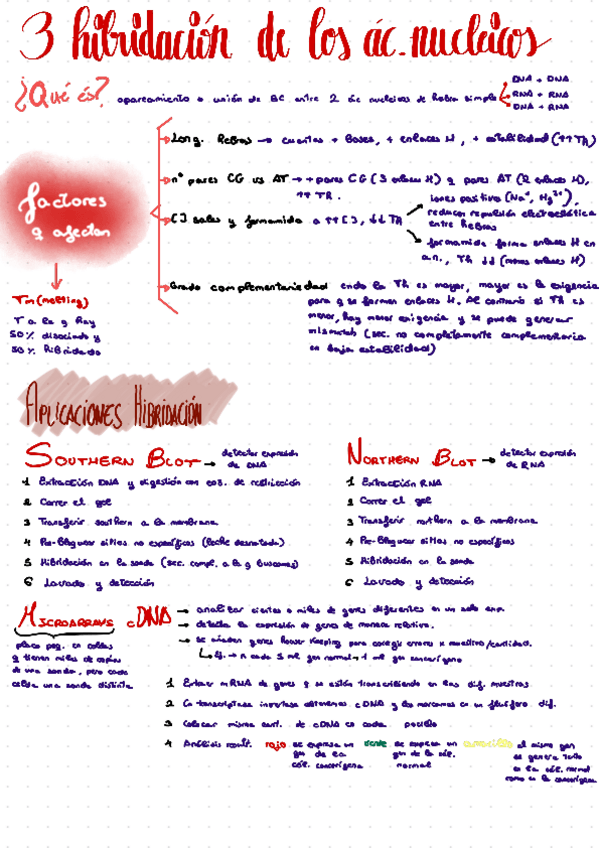 3 hibridación de los ác. nucleicos
¿Qué és? apareamiento o unión de BC entre 2 ác nucleicos de hebra simple
DNA + DNA
RNA + RNA
DNA + RNA
factores
q afectan
Long. Hebras → cuantas + bases, + enlaces H, + estabilidad (↑↑Th)
nº pares CG vs AT → + pares CG (3 enlaces H) q pares AT (2 enlaces H),
↑↑ TR.
[] sales y formamida a ↑↑ [], ↓↓ Th
iones positivo (Na⁺, Mg²⁺),
reducen repulsión electrostática
entre Hebras
formamida forma enlaces H en
a.n., Th ↓↓ (menos enlaces H)
Grado complementariedad endo la Th es mayor, mayor es la exigencia
para q se formen enlaces H. Al contrario si Th es
menor, hay menor exigencia y se puede generar
mismatch (sec. no completamente complementaria
en baja estabilidad)
Tm (melting)
T a la q hay
50% disociado y
50% hibridado
APLICACIONES HIBRIDACIÓN
SOUTHERN BLOT → detectar expresión
de DNA
1 Extracción DNA y digestión con eas. de restricción
2 Correr el gel
3 Transferir southern a la membrana
4 Pre-Bloquear sitios no específicos (leche desnatada)
5 Hibridación en la sonda (sec. compl. a la q buscamos)
6 Lavado y detección
NORTHERN BLOT → detectar expresión
de RNA
1 Extracción RNA
2 Correr el gel
3 Transferir northern a la membrana
4 Pre-Bloquear sitios no específicos
5 Hibridación en la sonda
6 Lavado y detección
MICROARRAYS cDNA
→ analizar cientos o miles de genes diferentes en un solo exp.
→ detecta la expresión de genes de manera relativa.
→ se añaden genes House Keeping para corregir errores x muestreo/cantidad.
n cada 1 ml gen normal → 1 ml gen cancerígeno
placa peq. en celdas
q tienen miles de copias
de una sonda, pero cada
celda una sonda distinta
1 Extraer mRNA de genes q se están transcribiendo en las dif. muestras
2 Con transcriptasa inversa obtenemos cDNA y los marcamos en un fluóforo dif.
3 Colocar misma cant. de cDNA en cada pocillo
4 Análisis result. rojo se expresa un
gen de la
cél. cancerígena
verde se expresa un
gen de la cél.
normal
amarillo el mismo gen
se genera tanto
en la cél. normal
como en la cancerígena